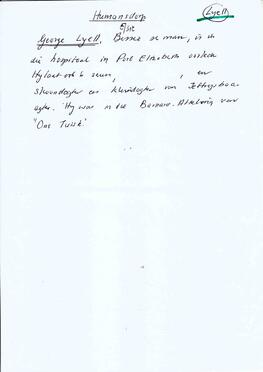 Humansdorp
Lyell
George Lyell, Boesman, is in
die hospitaal in Port Elizabeth oorlede
Hy laat ook 6 seun, , en
skoondogter en kleindogter van Jeffreysbaai
agter. Hy was in die Bernard-Afdeling van
"Ons Tuiste"